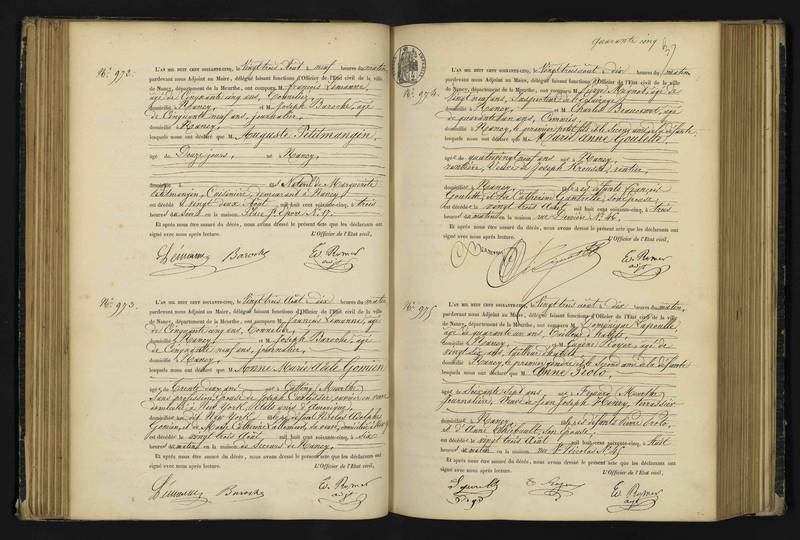 N°. 972.
L'AN MIL HUIT CENT SOIXANTE-CINQ, le Vingt trois Août à neuf heures du matin
pardevant nous Adjoint au Maire, délégué faisant fonctions d'Officier de l'Etat civil de la ville
de Nancy, département de la Meurthe, ont comparu M. François
âgé de Cinquante cinq ans,
domicilié à Nancy et M. Joseph Baroche, âgé
de Cinquante neuf ans, journalier,
domicilié à Nancy
lesquels nous ont déclaré que M. Auguste Petitmangin,
âgé de Douze jours, né à Nancy
domicilié à fils Naturel de Marguerite
Petitmangin, Cuisinière, demeurant à Nancy
est décédé le vingt deux Août, mil huit cent soixante-cinq, à trois
heures du Soir en la maison Place St Epvre N°. 17.
Et après nous être assuré du décès, nous avons dressé le présent acte que les déclarants ont
signé avec nous après lecture. L'Officier de l'Etat civil,
Baroche
adjt
N°. 973.
L'AN MIL HUIT CENT SOIXANTE-CINQ, le Vingt trois Août, dix heures du matin,
pardevant nous Adjoint au Maire, délégué faisant fonctions d'Officier de l'Etat civil de la ville
de Nancy, département de la Meurthe, ont comparu M. François
de Cinquante cinq ans,
domicilié à Nancy et M. Joseph Baroche, âgé
de Cinquante neuf ans, journalier,
domicilié à Nancy
lesquels nous ont déclaré que M. Anne Marie Adèle Gomien
âgée de trente deux ans née à Meurthe
Sans profession, épouse de Joseph
domicilié à New York, Etats unis d'Amérique,
New York, fille de défunt Nicolas
Gomien, et de Marie Catherine
est décédée le vingt trois Août, mil huit cent soixante-cinq, à six
heures du matin en la maison de Secours de Nancy,
Et après nous être assuré du décès, nous avons dressé le présent acte que les déclarants ont
signé avec nous après lecture. L'Officier de l'Etat civil,
Baroche
adjt
quarante cinq
N°. 974.
L'AN MIL HUIT CENT SOIXANTE-CINQ, le Vingt trois août, dix heures du matin
pardevant nous Adjoint au Maire, délégué faisant fonctions d'Officier de l'Etat civil de la ville
de Nancy, département de la Meurthe, ont comparu M. âgé de
vingt neuf ans,
domicilié à Nancy et M. Charles âgé
de quarante un ans, Commis,
domicilié à Nancy, le premier petit fils
lesquels nous ont déclaré que Me Marie Anne Goulette,
âgée de quatre vingt neuf ans née à Nancy
rentière, Veuve de Joseph rentier,
domiciliée à Nancy fille de défunts François
Goulette, et de Catherine son épouse
est décédée le vingt trois Août mil huit cent soixante-cinq, à trois
heures du matin en la maison rue N°. 46.
Et après nous être assuré du décès, nous avons dressé le présent acte que les déclarants ont
signé avec nous après lecture. L'Officier de l'Etat civil,
adjt
N°. 975
L'AN MIL HUIT CENT SOIXANTE-CINQ, le Vingt trois août, dix heures du matin,
pardevant nous Adjoint au Maire, délégué faisant fonctions d'Officier de l'Etat civil de la ville
de Nancy, département de la Meurthe, ont comparu M. Dominique
âgé de quarante un ans, Tailleur d'habits,
domicilié à Nancy et M. Eugène Royer, âgé de
vingt six ans, tailleur d'habits
domicilié à Nancy, le premier gendre et le Second ami de la défunte
lesquels nous ont déclaré que Me Anne
âgée de Soixante Sept ans née à Meurthe
journalière, Veuve de Jean Joseph Henry, terrassier
domiciliée à Nancy fille de défunts Pierre
et d'Anne son épouse,
est décédée le vingt trois Août mil huit cent soixante-cinq, à sept
heures du matin en la maison rue St Nicolas N°. 45
Et après nous être assuré du décès, nous avons dressé le présent acte que les déclarants ont
signé avec nous après lecture. L'Officier de l'Etat civil,
adjt